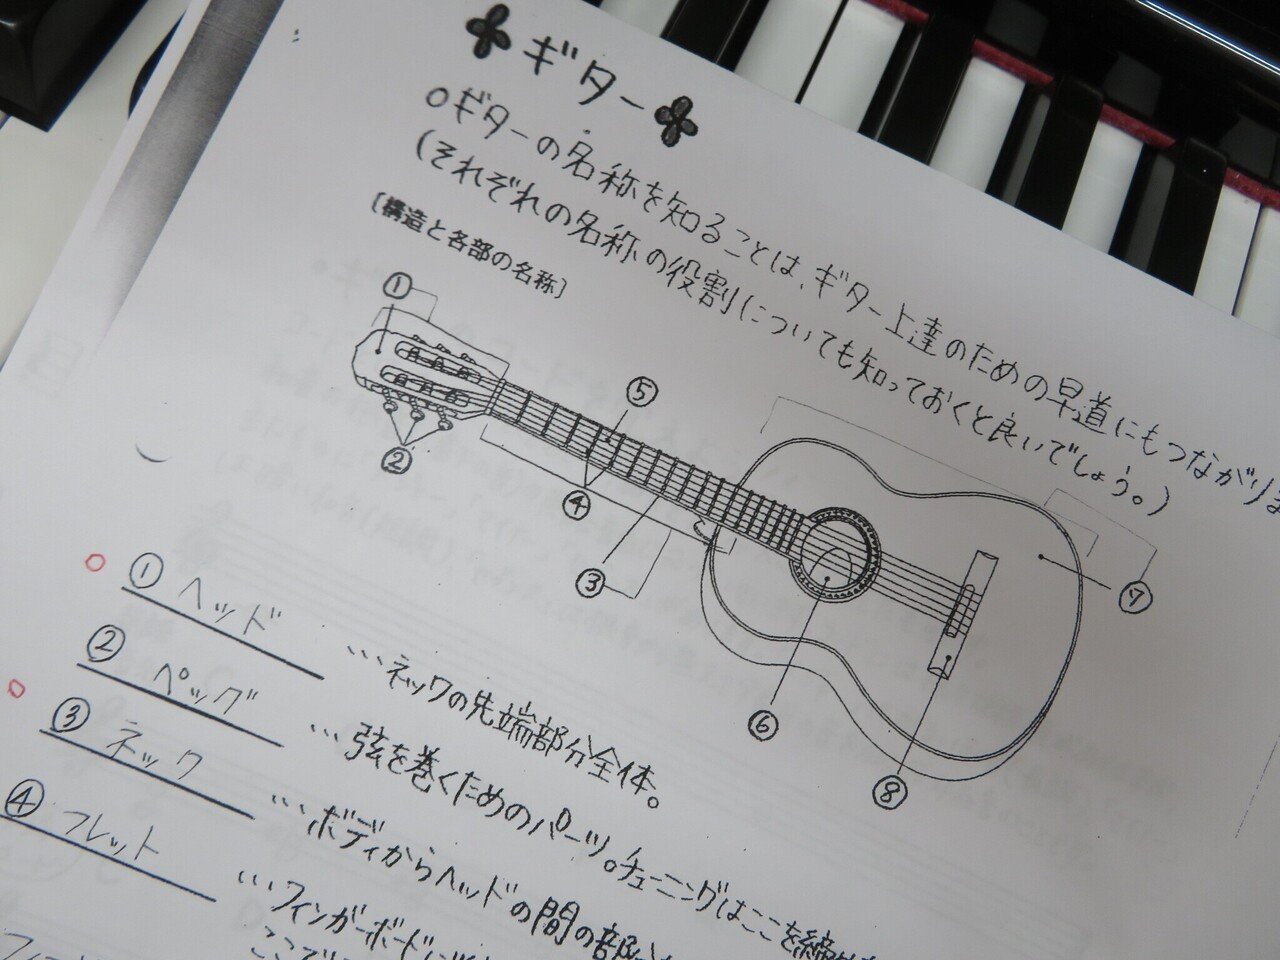 ギター
○ギターの名称を知ることは、ギター上達のための早道にもつながりま
(それぞれの名称の役割についても知っておくと良いでしょう。)
[構造と各部の名称]
①
②
⑤
④
③
⑥
⑦
⑧
① ヘッド …ネックの先端部分全体。
② ペッグ …弦を巻くためのパーツ。チューニングはここを締め
③ ネック …ボディからヘッドの間の部
④ フレット …フィンガーボードに
ここで